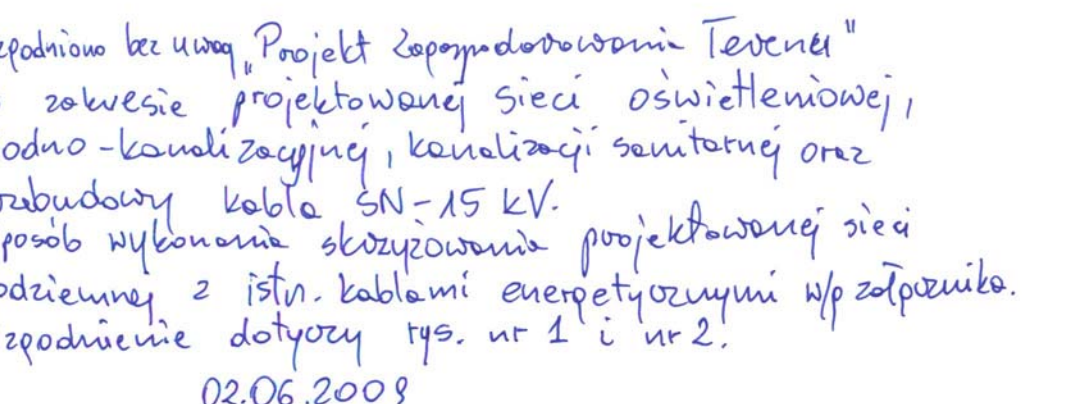 zgodniono bez uwag „Projekt Zagospodarowania Terenu"
zakresie projektowanej sieci oświetleniowej,
odno-kanalizacyjnej, kanalizacji sanitarnej oraz
rzebudowy kabla SN-15 kV.
posób wykonania skrzyżowania projektowanej sieci
odziemnej z istn. kablami energetycznymi w/g załącznika.
zgodnienie dotyczy rys. nr 1 i nr 2.
02.06.2009